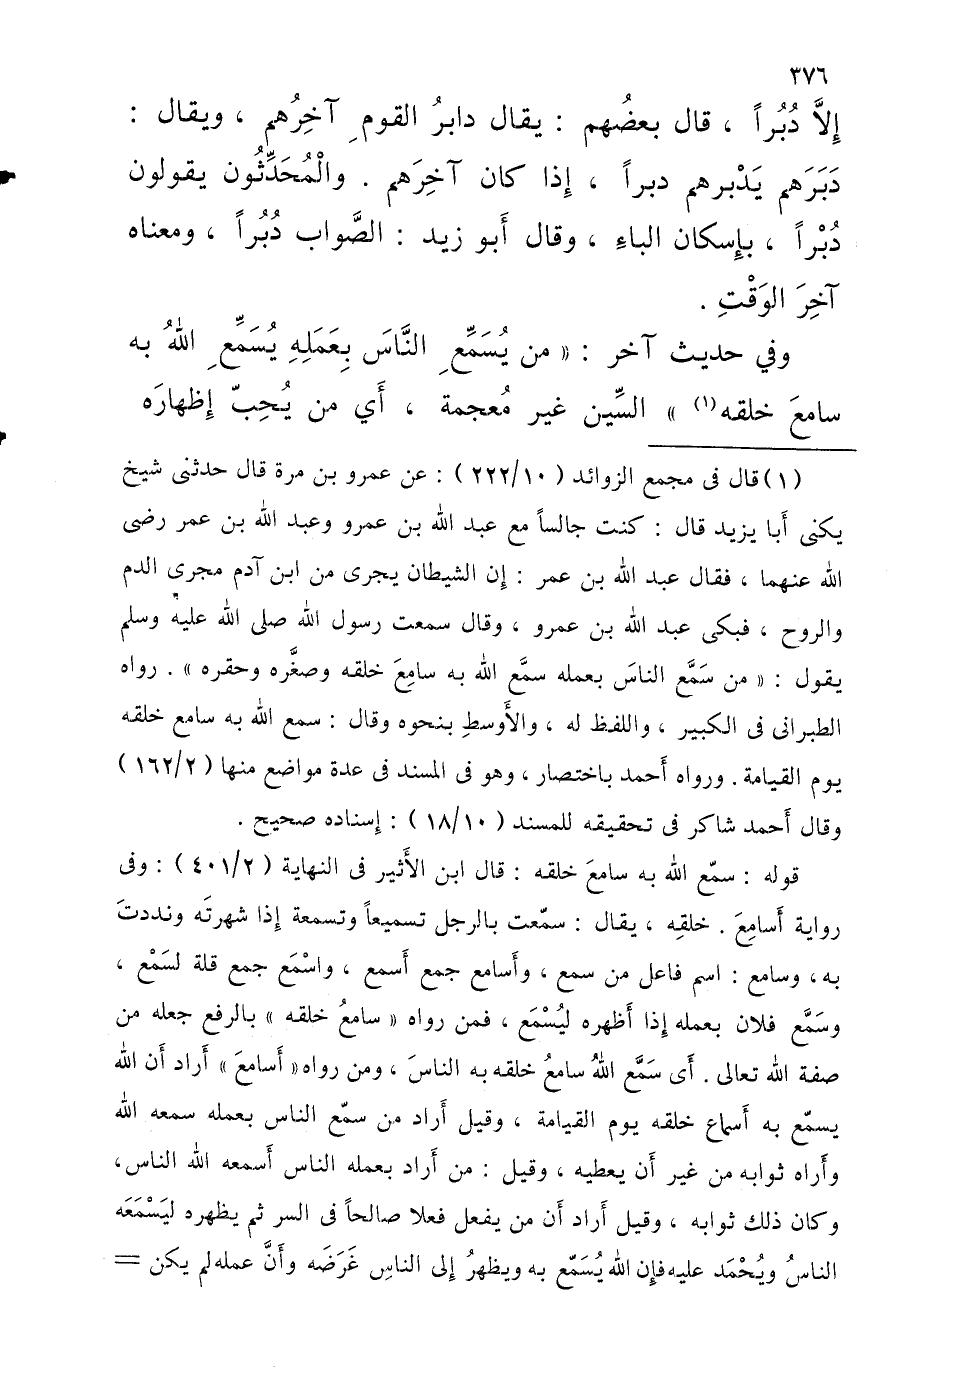 ٣٧٦
إِلاَّ دُبُراً ، قال بعضُهم : يقال دابرُ القومِ آخِرُهم ، ويقال :
دَبَرَهم يَدْبرهم دبراً ، إِذا كان آخِرَهم . والْمُحَدِّثُون يقولون
دُبْراً ، بإِسكان الباءِ ، وقال أَبو زيد : الصَّواب دُبُراً ، ومعناه
آخِرَ الوَقْتِ .
وفي حديث آخر : « من يُسَمِّعِ النَّاسَ بِعَمَلِهِ يُسَمِّعِ اللهُ به
سامعَ خلقه (١) » السِّين غير مُعجمة ، أَي من يُحِبّ إِظهارَه
(١) قال فى مجمع الزوائد ( ٢٢٢/١٠ ) : عن عمرو بن مرة قال حدثنى شيخ
يكنى أَبا يزيد قال : كنت جالساً مع عبد الله بن عمرو وعبد الله بن عمر رضى
الله عنهما ، فقال عبد الله بن عمر : إِن الشيطان يجرى من ابن آدم مجرى الدم
والروح ، فبكى عبد الله بن عمرو ، وقال سمعت رسول الله صلى الله عليه وسلم
يقول : « من سَمَّع الناسَ بعمله سمَّع الله به سامِعَ خلقه وصغَّره وحقره » . رواه
الطبرانى فى الكبير ، واللفظ له ، والأَوسطِ بنحوه وقال : سمع الله به سامع خلقه
يوم القيامة . ورواه أَحمد باختصار ، وهو فى المسند فى عدة مواضع منها ( ١٦٢/٢ )
وقال أَحمد شاكر فى تحقيقه للمسند ( ١٨/١٠ ) : إِسناده صحيح .
قوله : سمّع الله به سامعَ خلقه : قال ابن الأَثير فى النهاية ( ٤٠١/٢ ) : وفى
رواية أَسامِعَ . خلقِه ، يقال : سمّعت بالرجل تسميعاً وتسمعة إِذا شهرتَه ونددتَ
به ، وسامع : اسم فاعل من سمع ، وأَسامع جمع أَسمع ، واسْمَع جمع قلة لسَمْع ،
وسَمَّع فلان بعمله إِذا أَظهره ليُسْمَع ، فمن رواه « سامعُ خلقه » بالرفع جعله من
صفة الله تعالى . أَى سَمَّع اللهُ سامعُ خلقه به الناسَ ، ومن رواه « أَسامعَ » أَراد أَن الله
يسمّع به أَسماع خلقه يوم القيامة ، وقيل أَراد من سمّع الناس بعمله سمعه الله
وأَراه ثوابه من غير أَن يعطيه ، وقيل : من أَراد بعمله الناس أَسمعه الله الناس ،
وكان ذلك ثوابه ، وقيل أَراد أَن من يفعل فعلا صالحاً فى السر ثم يظهره ليَسْمَعَه
الناسُ ويُحْمَد عليه فإِن الله يُسَمّع به ويظهرُ إِلى الناسِ غَرَضَه وأَنَّ عمله لم يكن =